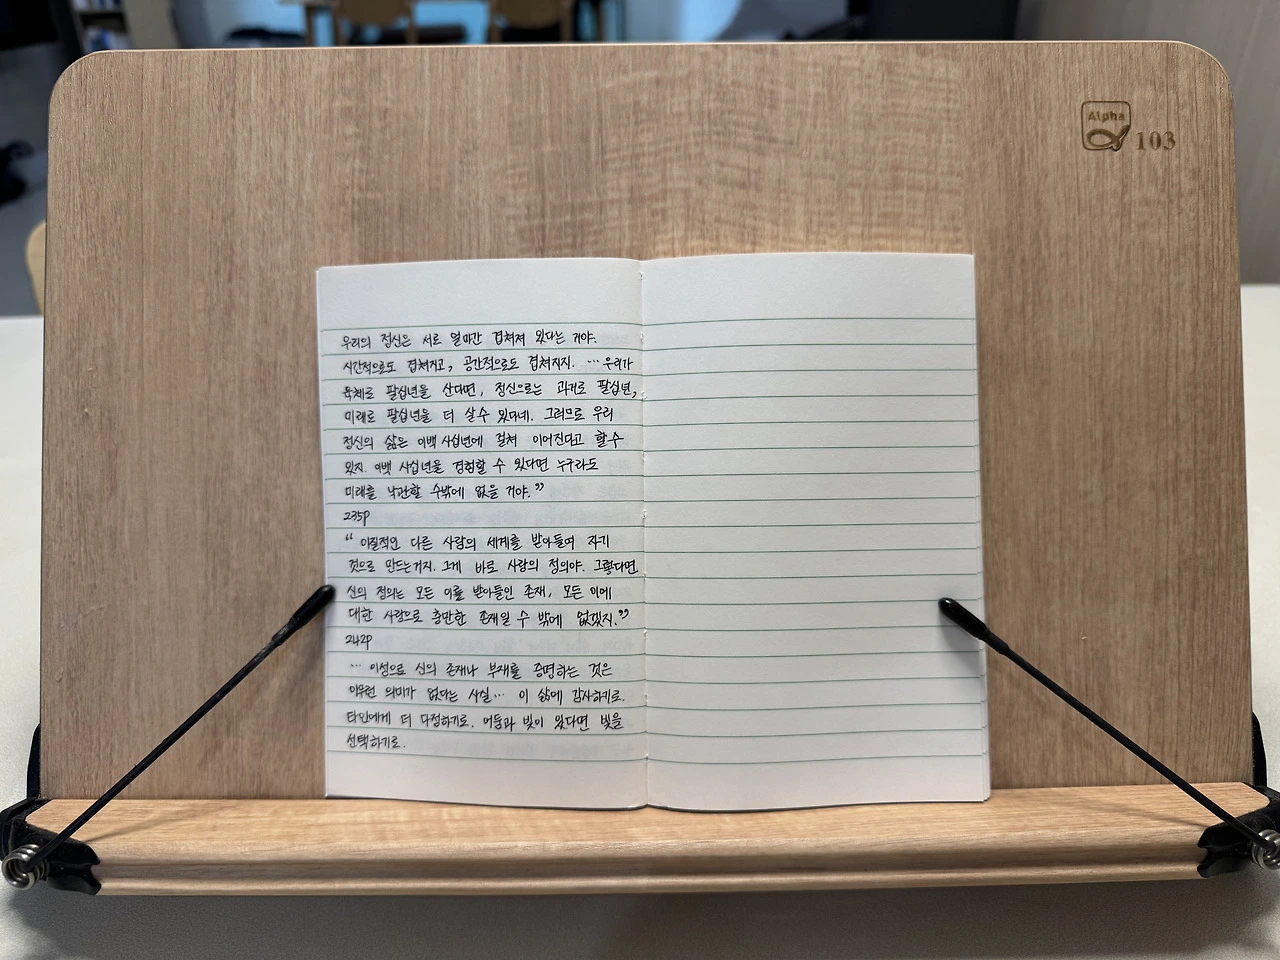 Alpha
103
우리의 정신은 서로 얼마간 겹쳐져 있다는 거야.
시간적으로도 겹쳐지고, 공간적으로도 겹쳐지지. … 우리가
육체로 팔십년을 산다면, 정신으로는 과거로 팔십년,
미래로 팔십년을 더 살수 있다네. 그러므로 우리
정신의 삶은 이백 사십년에 걸쳐 이어진다고 할수
있지. 이백 사십년을 경험할 수 있다면 누구라도
미래를 낙관할 수밖에 없을 거야."
235p
" 이질적인 다른 사람의 세계를 받아들여 자기
것으로 만드는거지. 그게 바로 사랑의 정의야. 그렇다면
신의 정의는 모든 이를 받아들인 존재, 모든 이에
대한 사랑으로 충만한 존재일 수 밖에 없겠지."
242p
… 이성으로 신의 존재나 부재를 증명하는 것은
아무런 의미가 없다는 사실… 이 삶에 감사하기로.
타인에게 더 다정하기로. 어둠과 빛이 있다면 빛을
선택하기로.